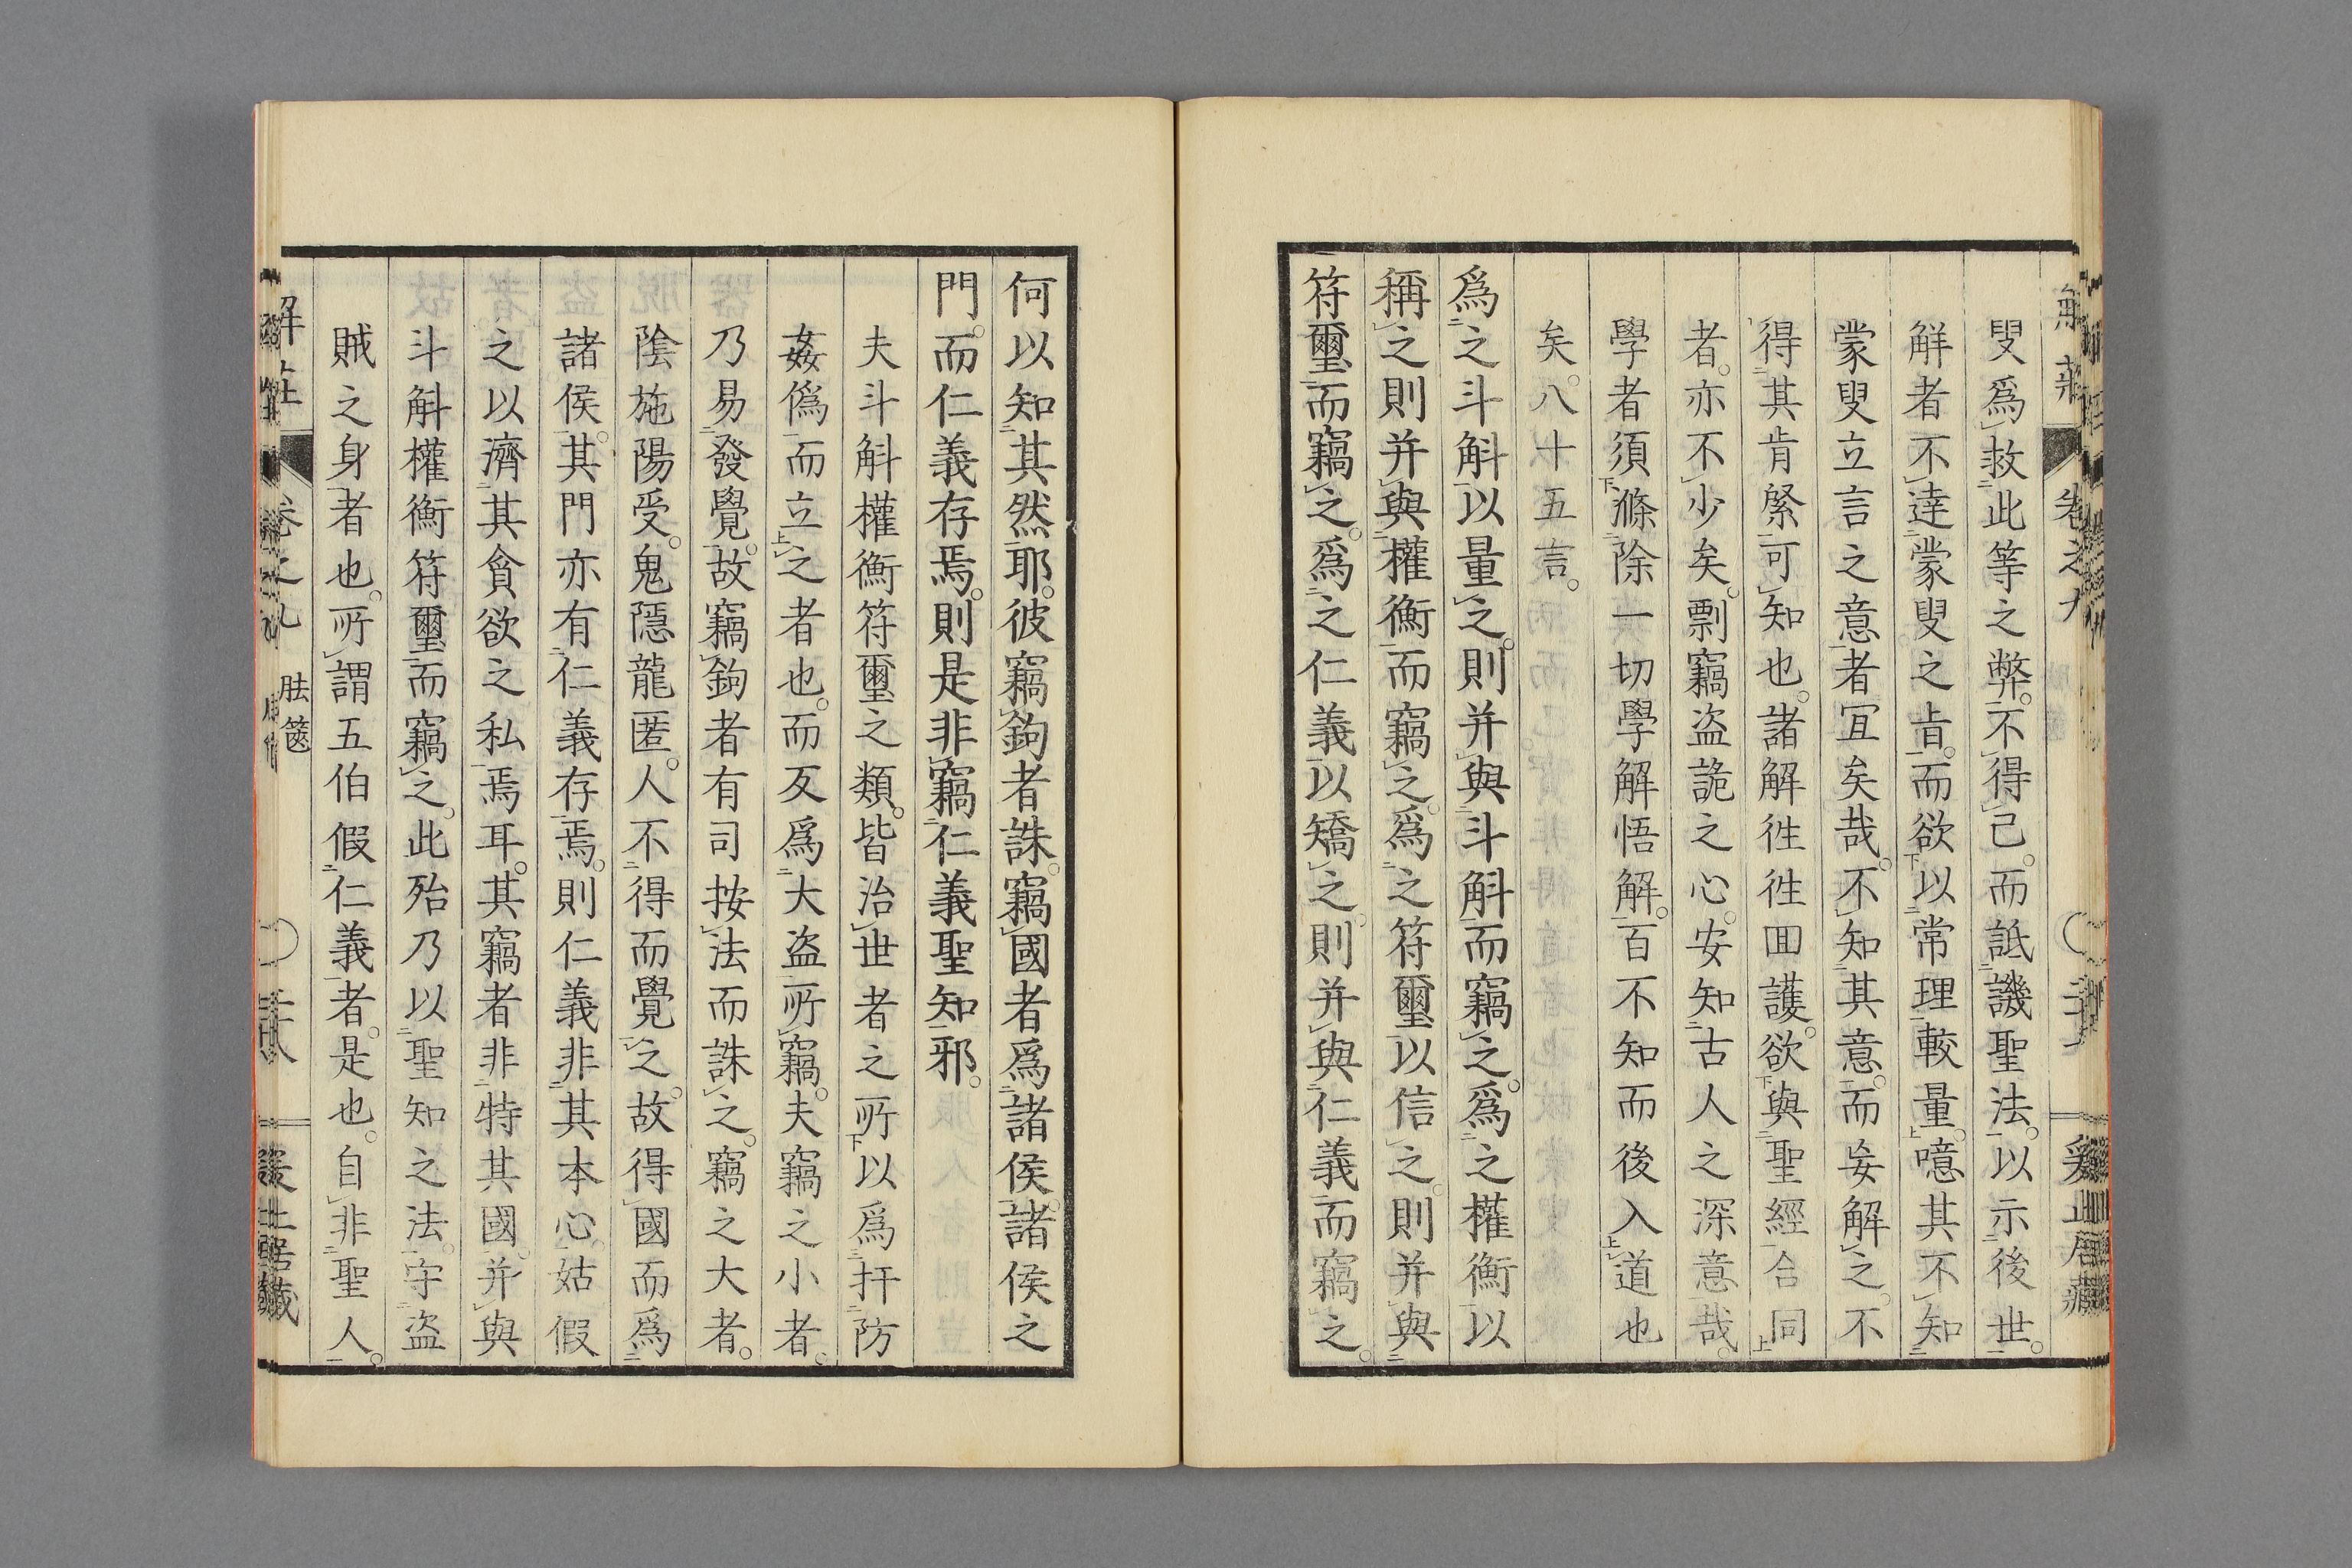 叟爲救此等之弊。不得已。而詆譏聖法。以示後世。
解者不達蒙叟之旨。而欲以常理較量。噫其不知
蒙叟立言之意者冝矣哉。不知其意。而妄解之。不
得其肯綮可知也。諸解徃徃囬護。欲與聖經合同
者。亦不少矣。剽竊盗詭之心。安知古人之深意哉。
學者須滌除一切學解悟解。百不知而後入道也
矣。八十五言。
爲之斗斛以量之。則并與斗斛而竊之。爲之權衡以
稱之則并與權衡而竊之。爲之符璽以信之。則并與
符璽而竊之。爲之仁義以矯之。則并與仁義而竊之。
何以知其然耶。彼竊鉤者誅。竊國者爲諸侯。諸侯之
門。而仁義存焉。則是非竊仁義聖知邪。
夫斗斛權衡符璽之類。皆治世者之所以爲扞防
姦僞而立之者也。而反爲大盗所竊。夫竊之小者。
乃易發覺。故竊鉤者有司按法而誅之。竊之大者。
陰施陽受。鬼隱龍匿。人不得而覺之。故得國而爲
諸侯。其門亦有仁義存焉。則仁義非其本心。姑假
之以濟其貪欲之私焉耳。其竊者非特其國。并與
斗斛權衡符璽而竊之。此殆乃以聖知之法。守盗
賊之身者也。所謂五伯假仁義者。是也。自非聖人。
解莊
卷之九
胠篋